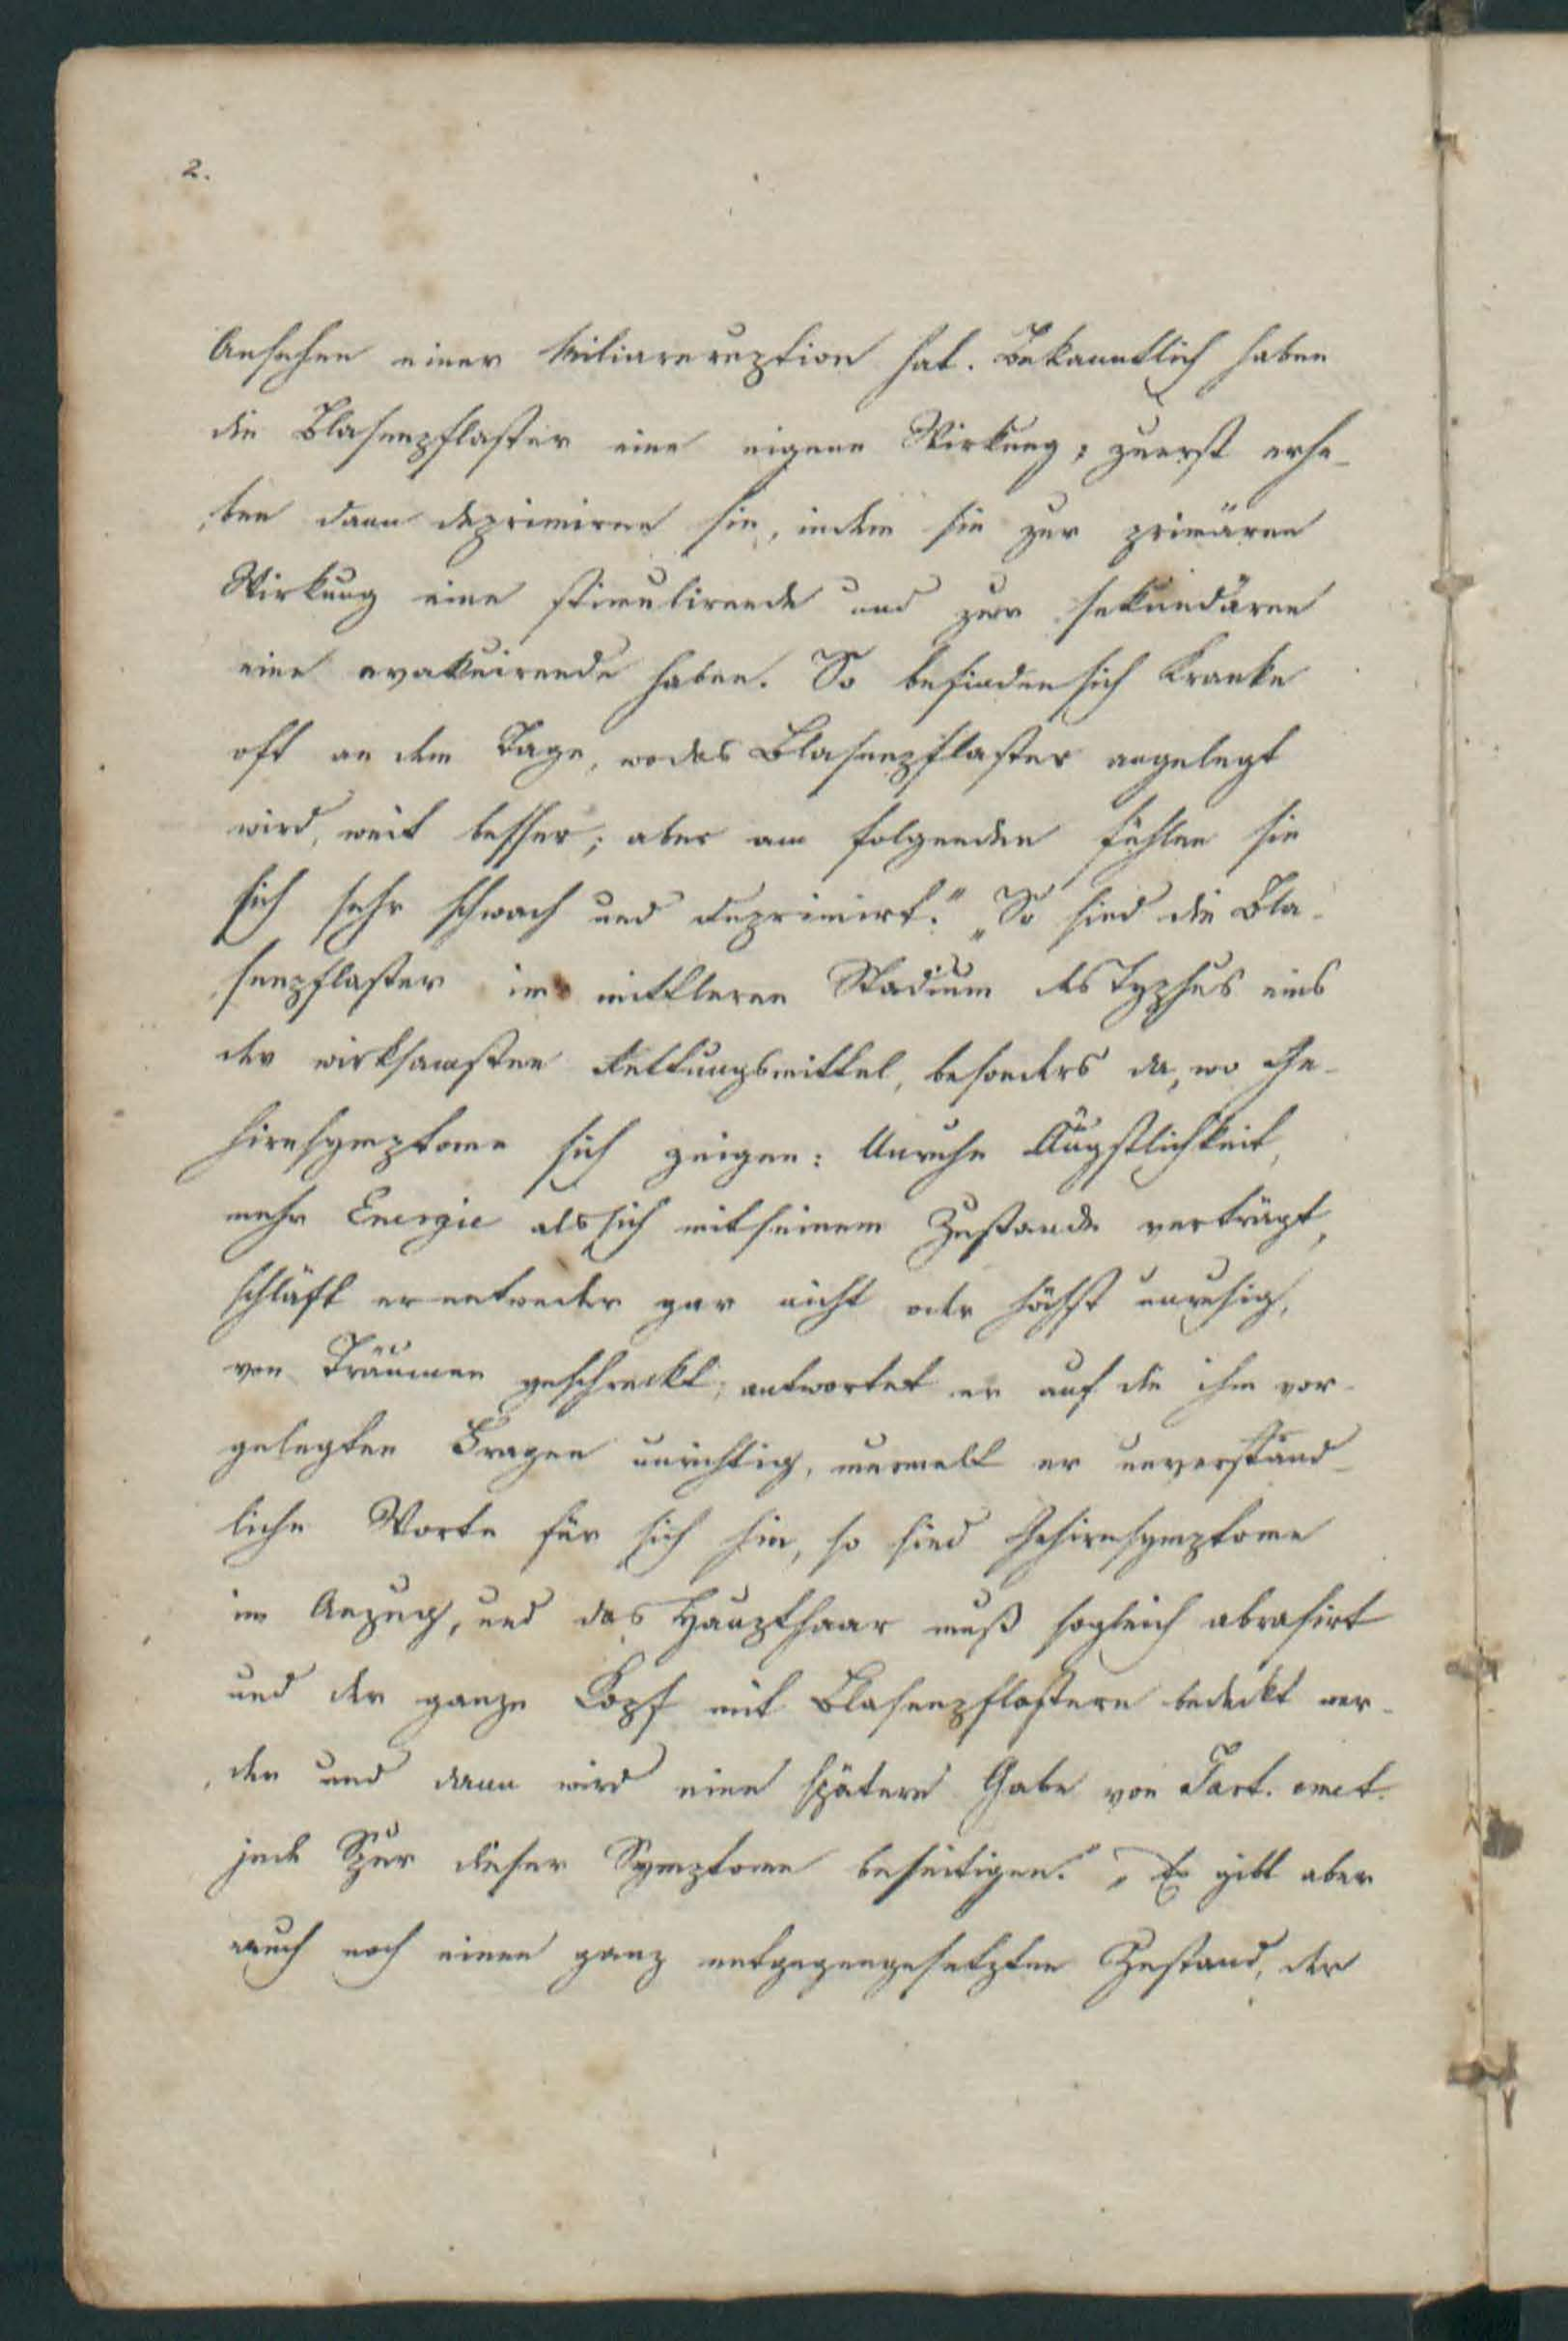 2.
Ansehen einer Miliareruption hat. Bekanntlich haben
die Blasenpflaster eine eigene Wirkung; zuerst erhe-
ben dann deprimiren sie, indem sie zur primären
Wirkung eine stimulirende und zur sekundären
eine evakuirende haben. So befinden sich Kranke
oft an dem Tage, wo das Blasenpflaster angelegt
wird, weit besser; aber am folgenden fühlen sie
sich sehr schwach und deprimirt." „So sind die Bla-
senpflaster im mittleren Stadium des Typhus eins
der wirksamsten Rettungsmittel, besonders da, wo Ge-
hirnsymptome sich zeigen: Unruhe Ängstlichkeit,
mehr Energie als sich mit seinem Zustande verträgt,
schläft er entweder gar nicht oder höchst unruhig,
von Träumen geschreckt; antwortet er auf die ihm vor-
gelegten Fragen unrichtig, murmelt er unverständ-
liche Worte für sich hin, so sind Gehirnsymptome
im Anzug, und das Haupthaar muß sogleich abrasirt
und der ganze Kopf mit Blasenpflastern bedeckt wer-
den und dann wird eine spätere Gabe von Tart. emet.
jede Spur dieser Symptome beseitigen." „Es gibt aber
auch noch einen ganz entgegengesetzten Zustand, der